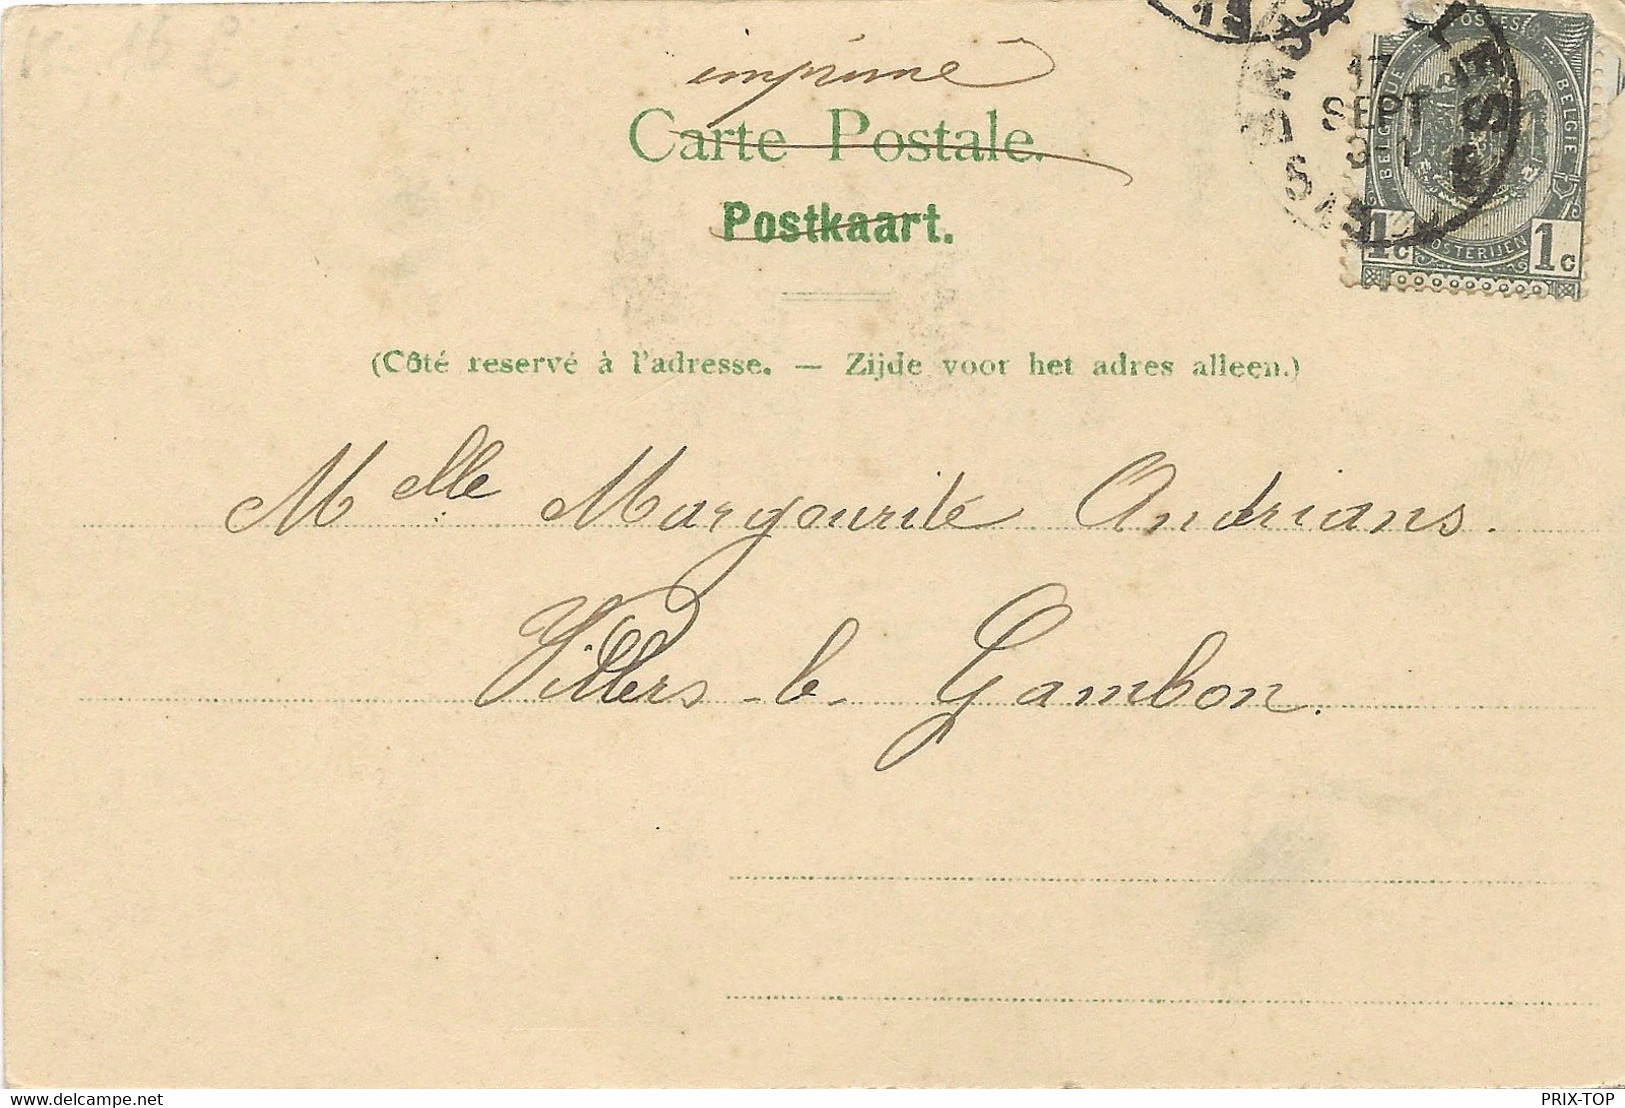 imprimé
Carte Postale.
Postkaart.
(Côté reservé à l'adresse. — Zijde voor het adres alleen.)
BELGIQUE BELGIE
17
SEPT
1c 1c
Melle Margourite Andrians.
Villers-le-Gambon.
www.delcampe.net PRIX-TOP